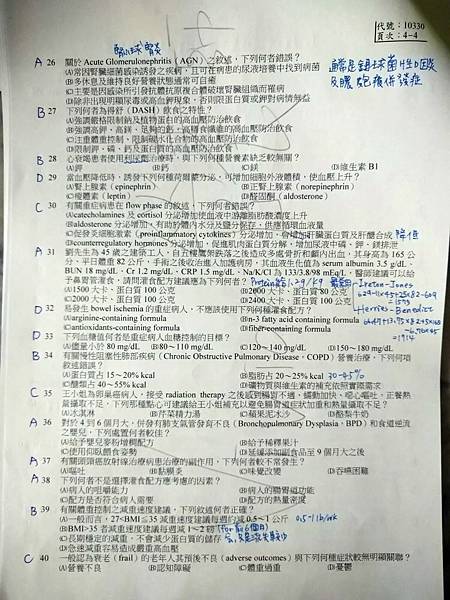 代號：10330
頁次：4-4
腎絲球腎炎
A 26 關於 Acute Glomerulonephritis（AGN）之敘述，下列何者錯誤？
(A)常因腎臟細菌感染誘發之疾病，且可在病患的尿液培養中找到病菌
(B)多休息及維持良好營養狀態通常可自癒
(C)主要是因感染所引發抗體抗原複合體破壞腎臟組織而罹病
(D)除非出現明顯尿毒或高血鉀現象，否則限蛋白質或鉀對病情無益
通常是鏈球菌性咽炎
及膿皰瘡併發症
B 27 下列何者為得舒（DASH）飲食之特性？
(A)強調嚴格限制鈉及植物蛋白的高血壓防治飲食
(B)強調高鉀，高鎂，足夠的鈣，高膳食纖維的高血壓防治飲食
(C)注重體重控制，限制碳水化合物的高血壓防治飲食
(D)限制鉀、磷、鈣及蛋白質的高血壓防治飲食
B 28 心衰竭患者使用利尿劑治療時，與下列何種營養素缺乏較無關？
(A)鉀 (B)鈣 (C)鎂 (D)維生素 B1
D 29 當血壓降低時，誘發下列何種荷爾蒙分泌，可增加細胞外液體積，使血壓上升？
(A)腎上腺素（epinephrine） (B)正腎上腺素（norepinephrin）
(C)瘦體素（leptin） (D)醛固酮（aldosterone）
C 30 有關重症病患在 flow phase 的敘述，下列何者錯誤？
(A)catecholamines 及 cortisol 分泌增加使血液中游離脂肪酸濃度上升
(B)aldosterone 分泌增加，有助於體內水分及鹽分保存，供應循環血液量
(C)促發炎細胞激素（proinflammatory cytokines）分泌增加，會增加肝臟蛋白質及肝醣合成
(D)counterregulatory hormones 分泌增加，促進肌肉蛋白質分解，增加尿液中磷、鉀、鎂排泄
A 31 劉先生為 45 歲之建築工人，自五樓鷹架跌落之後造成多處骨折和顱內出血，其身高為 165 公
分，平日體重 82 公斤，手術之後收治進入加護病房，其血液生化值為 serum albumin 3.5 g/dL、
BUN 18 mg/dL、Cr 1.2 mg/dL、CRP 1.5 mg/dL、Na/K/Cl 為 133/3.8/98 mEq/L，醫師建議可以給
予鼻胃管灌食，請問灌食配方建議應為下列何者？
(A)1500 大卡、蛋白質 100 公克
(C)2000 大卡、蛋白質 100 公克
D 32 易發生 bowel ischemia 的重症病人，不應該使用下列何種灌食配方？
(A)arginine-containing formula (B)n-3 fatty acid containing formula
(C)antioxidants-containing formula (D)fiber containing formula
D 33 下列血糖值何者是重症病人血糖控制的目標？
(A)儘量小於 80 mg/dL (B)80～110 mg/dL (C)120～150 mg/dL (D)150～180 mg/dL
B 34 有關慢性阻塞性肺部疾病（Chronic Obstructive Pulmonary Disease，COPD）營養治療，下列何項
敘述錯誤？
(A)蛋白質占 15～20% kcal (B)脂肪占 20～25% kcal 30-45%
(C)醣類占 40～55% kcal (D)礦物質與維生素的補充依照實際需求
C 35 王小姐為卵巢癌病人，接受 radiation therapy 之後感到腸胃不適、蠕動加快、噁心嘔吐，正餐熱
量攝取不足，下列那種點心可建議給王小姐補充以避免腸胃道症狀加重和熱量攝取不足？
(A)冰淇淋 (B)芹菜精力湯 (C)糙果泥冰沙 (D)酪梨牛奶
A 36 對於 4 到 6 個月大，併發有肺支氣管發育不良（Bronchopulmonary Dysplasia，BPD）和食道逆流
之嬰兒，下列處置何者較佳？
(A)給予嬰兒麥粉增稠配方 (B)給予稀釋果汁
(C)使用仰臥餵食姿勢 (D)延緩添加副食品至 9 個月大之後
A 37 有關頭頸癌放射線治療病患治療的副作用，下列何者較不常發生？
(A)嘔吐 (B)黏膜炎 (C)味覺改變 (D)吞嚥困難
A 38 下列何者不是選擇灌食配方應考慮的因素？
(A)病人的咀嚼能力 (B)病人的腸胃道功能
(C)配方是否符合病人需要 (D)配方的熱量密度
B 39 有關體重控制之減重速度建議，下列敘述何者正確？
(A)一般而言，27<BMI≦35 減重速度建議每週約減 0.5～1 公斤 0.5-1 lb/wk
(B)BMI>35 者減重速度建議每週減 1～2 磅（for 前6個月）
(C)長期穩定的減重，不會減少蛋白質的儲存
(D)急速減重容易造成體重高血壓
C 40 一般認為衰老（frail）的老年人其預後不良（adverse outcomes）與下列何種症狀較無明顯關聯？
(A)營養不良 (B)認知障礙 (C)體重過重 (D)憂鬱